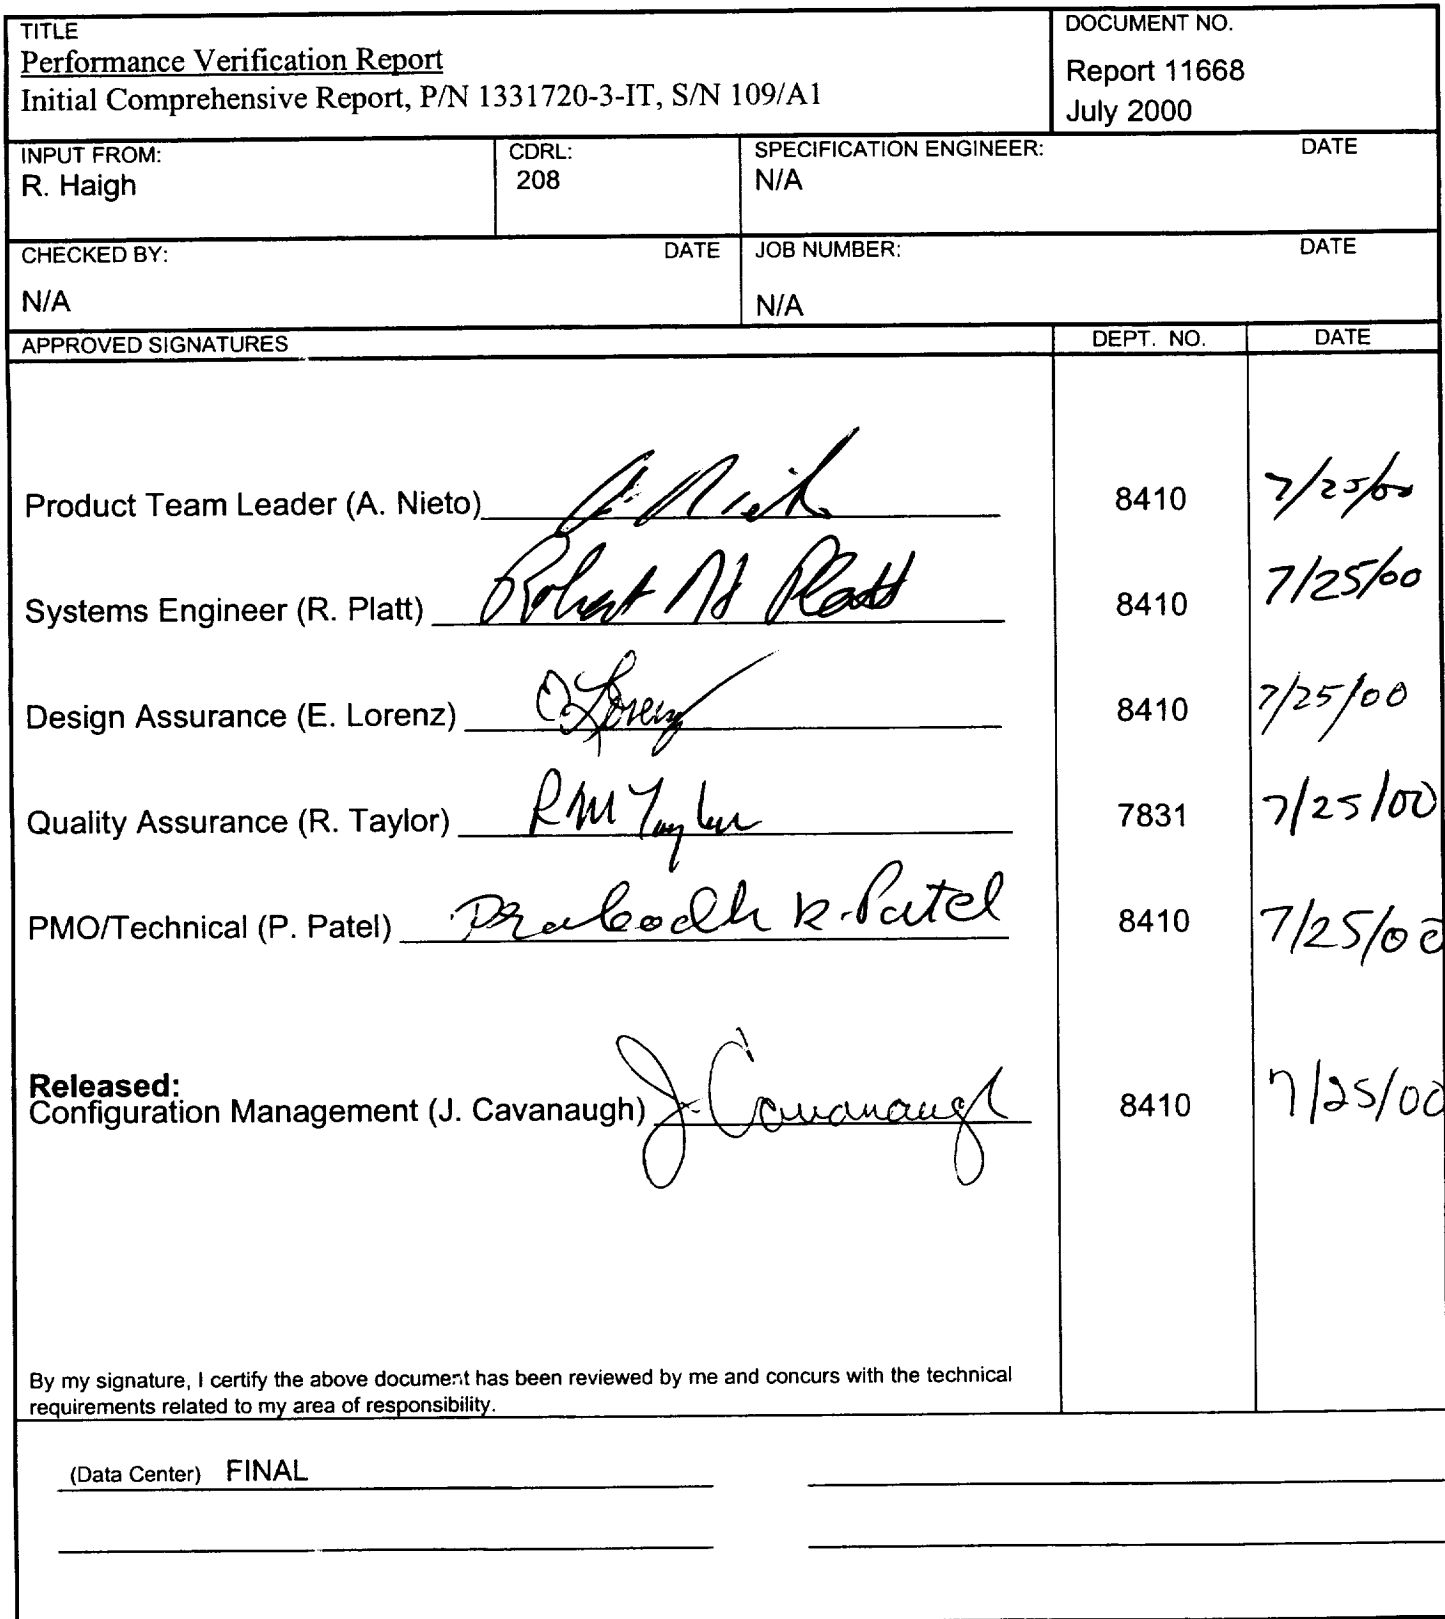 TITLE
Performance Verification Report
Initial Comprehensive Report, P/N 1331720-3-IT, S/N 109/A1
DOCUMENT NO.
Report 11668
July 2000
INPUT FROM:
R. Haigh
CDRL:
208
SPECIFICATION ENGINEER: DATE
N/A
CHECKED BY: DATE
N/A
JOB NUMBER: DATE
N/A
APPROVED SIGNATURES DEPT. NO. DATE
Product Team Leader (A. Nieto) 8410 7/25/00
Systems Engineer (R. Platt) Robert Platt 8410 7/25/00
Design Assurance (E. Lorenz) Lorenz 8410 7/25/00
Quality Assurance (R. Taylor) RM Taylor 7831 7/25/00
PMO/Technical (P. Patel) Prabodh K. Patel 8410 7/25/00
Released:
Configuration Management (J. Cavanaugh) J. Cavanaugh 8410 7/25/00
By my signature, I certify the above document has been reviewed by me and concurs with the technical
requirements related to my area of responsibility.
(Data Center) FINAL